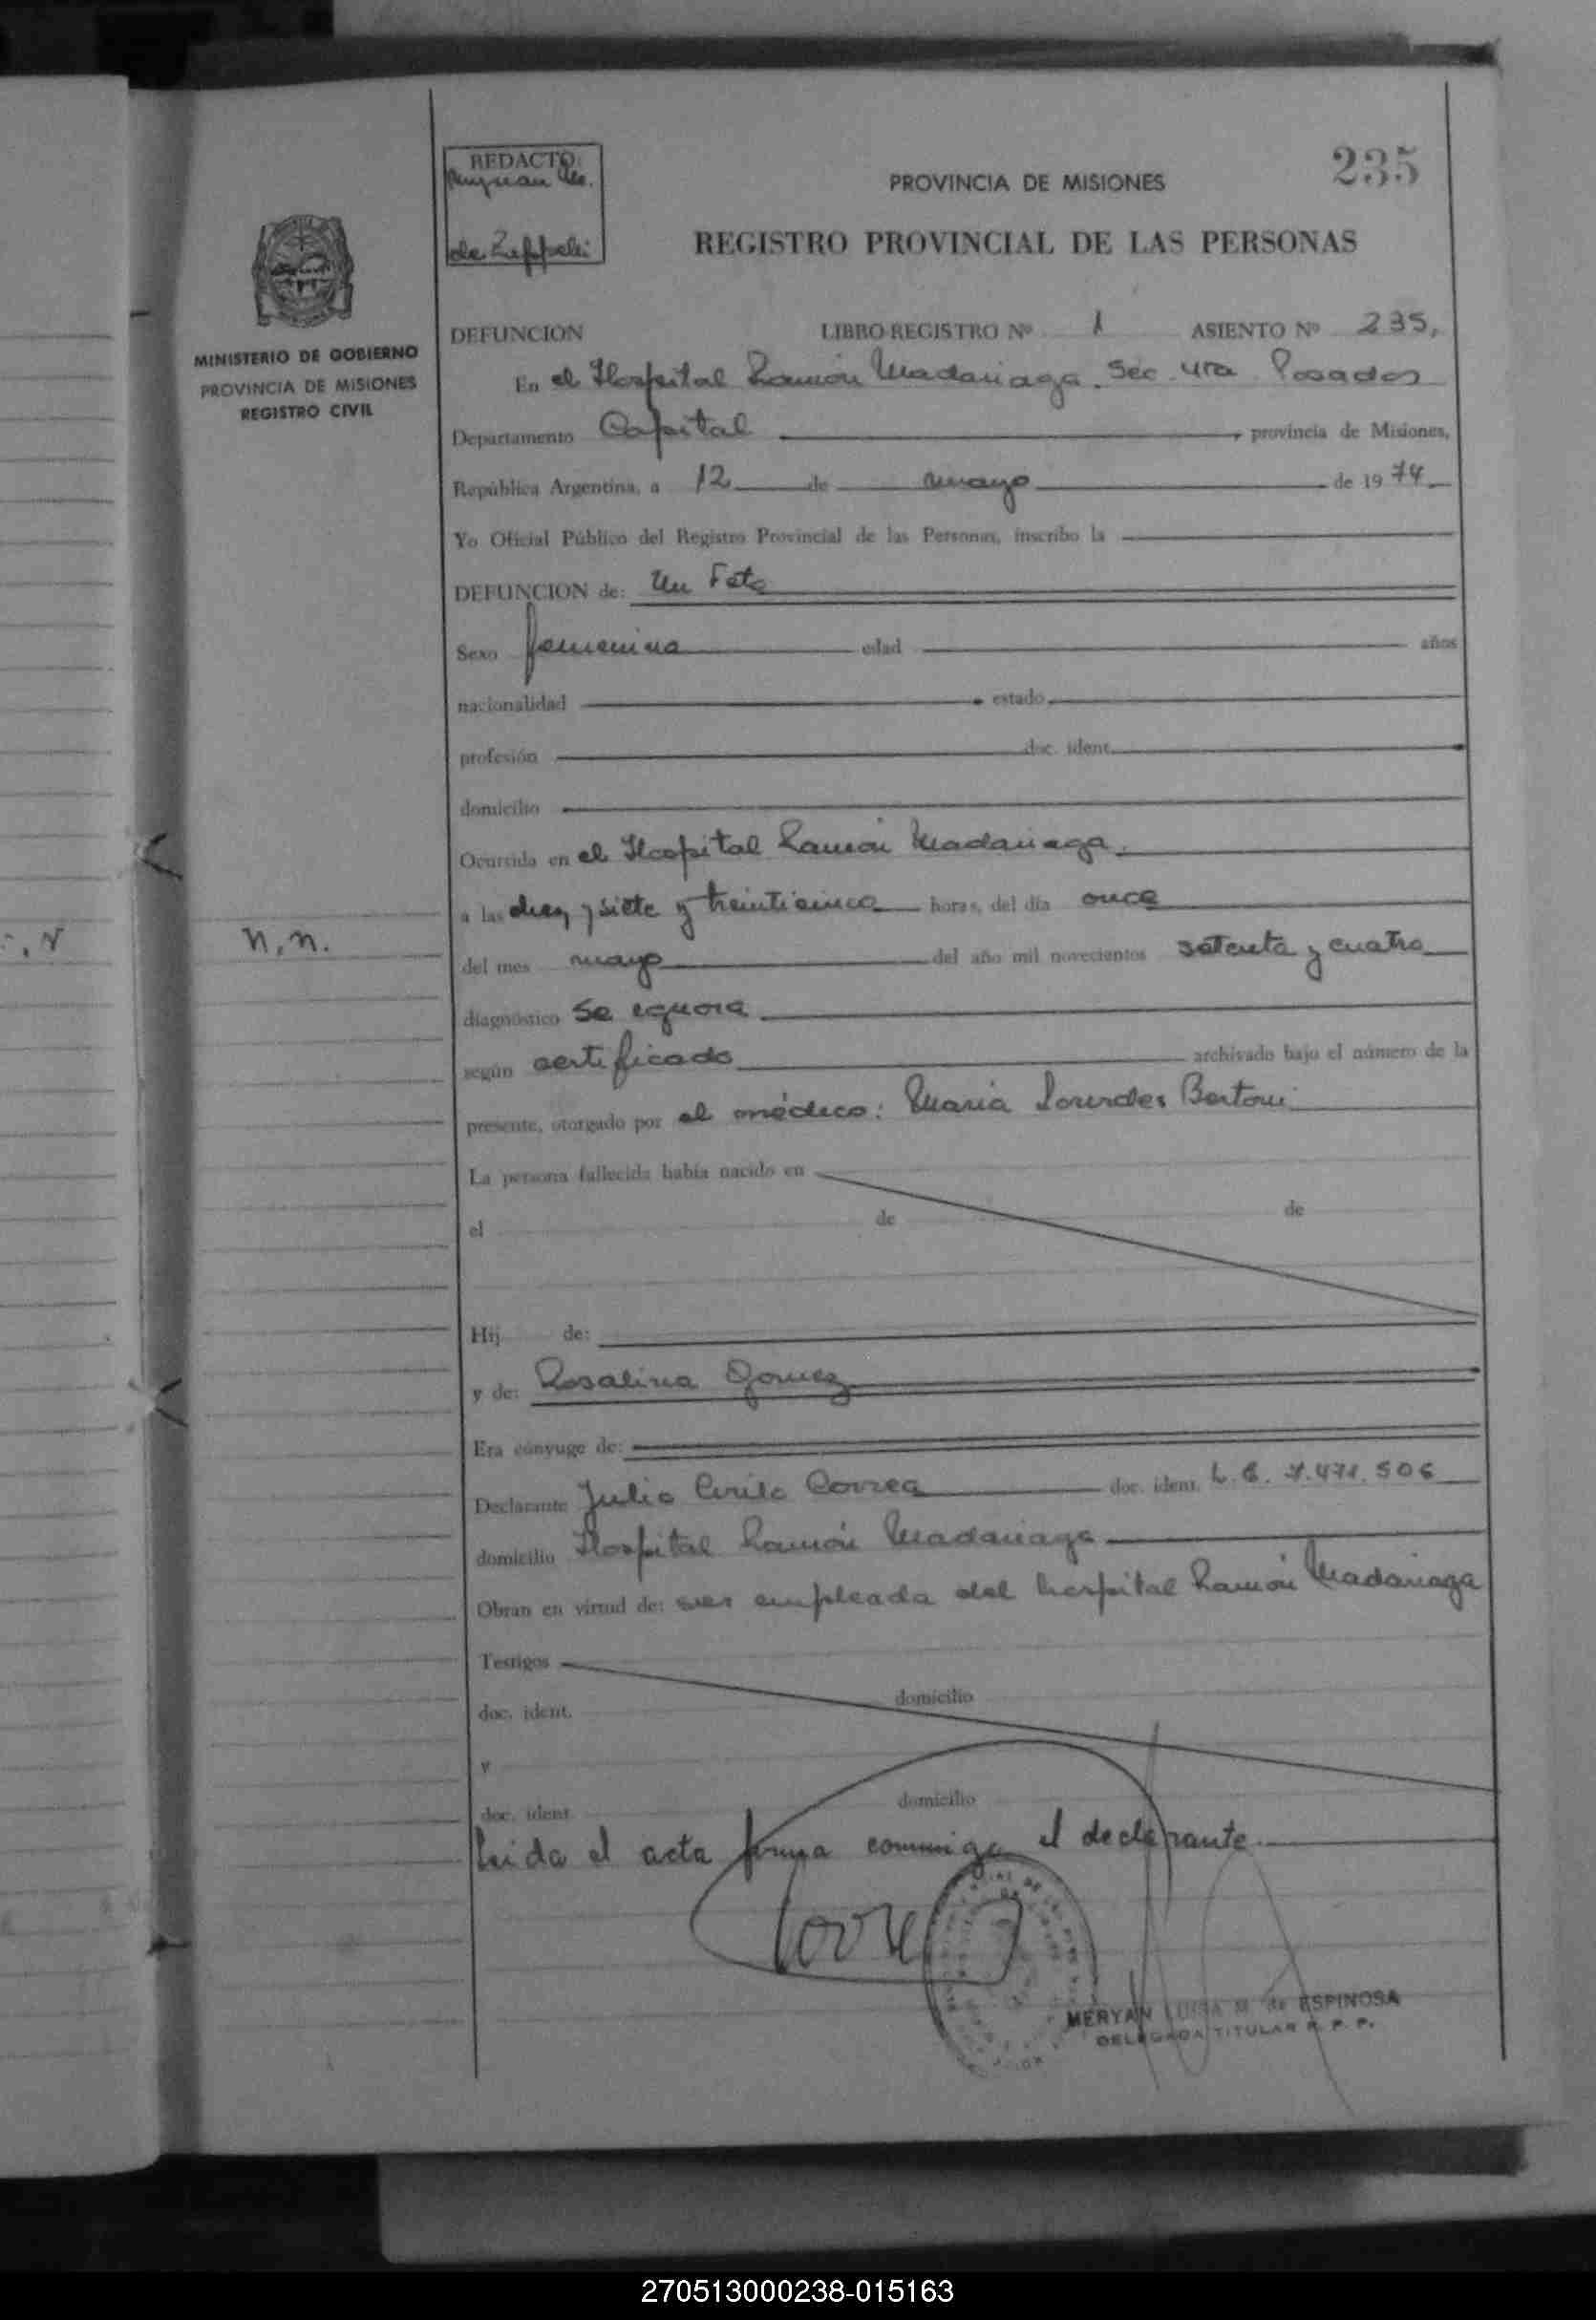 235
REDACTO:
de Zeppeli
PROVINCIA DE MISIONES
REGISTRO PROVINCIAL DE LAS PERSONAS
MINISTERIO DE GOBIERNO
PROVINCIA DE MISIONES
REGISTRO CIVIL
DEFUNCION LIBRO REGISTRO Nº 1 ASIENTO Nº 235,
En el Hospital Ramón Madariaga. Sec. 4ta Posadas
Departamento Capital provincia de Misiones,
República Argentina, a 12 de mayo de 1974
Yo Oficial Público del Registro Provincial de las Personas, inscribo la
DEFUNCION de: Un Feto
Sexo femenino edad años
nacionalidad estado
profesión doc. ident.
domicilio
Ocurrida en el Hospital Ramón Madariaga.
a las diez y siete y treinticinco horas, del día once
n.n.
del mes mayo del año mil novecientos setenta y cuatro
diagnóstico se ignora
según certificado archivado bajo el número de la
presente, otorgado por el médico: Maria Lourdes Bertoni
La persona fallecida había nacido en
el de de
Hij de:
y de: Rosalina Gomez
Era cónyuge de:
Declarante Julio Cirilo Correa doc. ident. L.E. 7.471.506
domicilio Hospital Ramón Madariaga
Obran en virtud de: ser empleada del hospital Ramón Madariaga
Testigos
doc. ident. domicilio
y
doc. ident. domicilio
Leida el acta firma conmigo el declarante.
MERYAN LUISA M. de ESPINOSA
DELEGADA TITULAR R. P. P.
270513000238-015163